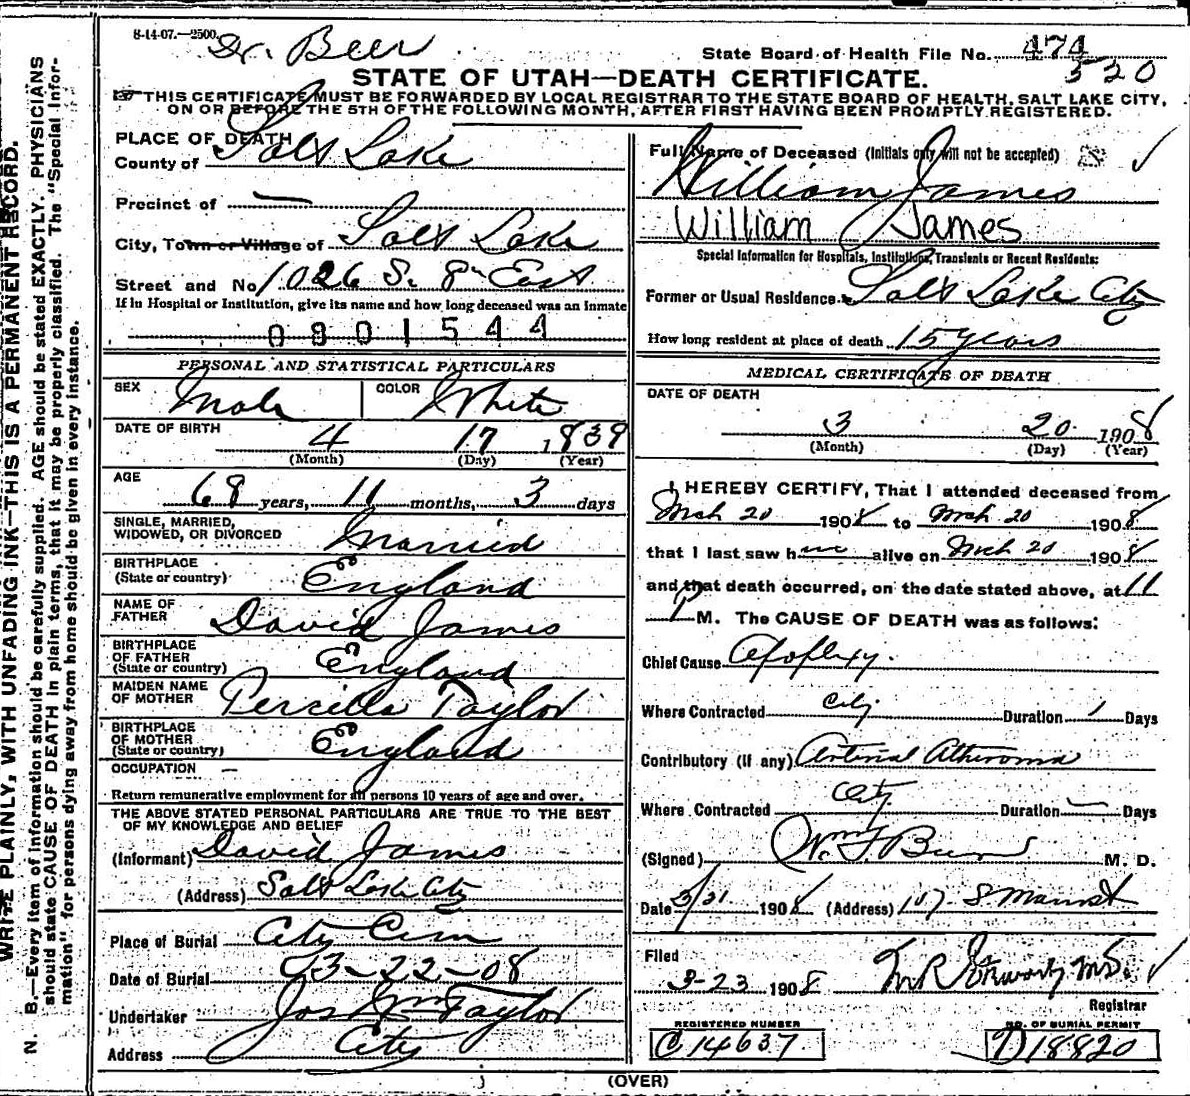 8-14-07.—2500.
Dr. Beer
State Board of Health File No. 474
520
STATE OF UTAH—DEATH CERTIFICATE.
THIS CERTIFICATE MUST BE FORWARDED BY LOCAL REGISTRAR TO THE STATE BOARD OF HEALTH, SALT LAKE CITY,
ON OR BEFORE THE 5TH OF THE FOLLOWING MONTH, AFTER FIRST HAVING BEEN PROMPTLY REGISTERED.
WRITE PLAINLY, WITH UNFADING INK—THIS IS A PERMANENT RECORD.
N. B.—Every item of information should be carefully supplied. AGE should be stated EXACTLY. PHYSICIANS
should state CAUSE OF DEATH in plain terms, that it may be properly classified. The "Special Infor-
mation" for persons dying away from home should be given in every instance.
PLACE OF DEATH
County of Salt Lake
Precinct of —
City, Town or Village of Salt Lake
Street and No. 1026 S. 8th East
If in Hospital or Institution, give its name and how long deceased was an inmate
0801544
PERSONAL AND STATISTICAL PARTICULARS
SEX Male COLOR White
DATE OF BIRTH 4 17 1839
(Month) (Day) (Year)
AGE 68 years, 11 months, 3 days
SINGLE, MARRIED,
WIDOWED, OR DIVORCED Married
BIRTHPLACE
(State or country) England
NAME OF
FATHER David James
BIRTHPLACE
OF FATHER
(State or country) England
MAIDEN NAME
OF MOTHER Percilla Taylor
BIRTHPLACE
OF MOTHER
(State or country) England
OCCUPATION —
Return remunerative employment for all persons 10 years of age and over.
THE ABOVE STATED PERSONAL PARTICULARS ARE TRUE TO THE BEST
OF MY KNOWLEDGE AND BELIEF
(Informant) David James
(Address) Salt Lake City
Place of Burial City Cem
Date of Burial 3-22-08
Undertaker Jos Wm Taylor
Address City
Full Name of Deceased (Initials only will not be accepted)
William James
William James
Special Information for Hospitals, Institutions, Transients or Recent Residents:
Former or Usual Residence Salt Lake City
How long resident at place of death 15 years
MEDICAL CERTIFICATE OF DEATH
DATE OF DEATH
3 20 1908
(Month) (Day) (Year)
I HEREBY CERTIFY, That I attended deceased from
Mch 20 1908 to Mch 20 1908
that I last saw him alive on Mch 20 1908
and that death occurred, on the date stated above, at 11
P M. The CAUSE OF DEATH was as follows:
Chief Cause Apoplexy.
Where Contracted City Duration 1 Days
Contributory (if any) Arterial Atheroma
Where Contracted City Duration — Days
(Signed) Wm F Beer M. D.
Date 3/21 1908 (Address) 107 S Main St
Filed
3-23 1908
M.D.
Registrar
REGISTERED NUMBER
C 14637
NO. OF BURIAL PERMIT
D 18820
(OVER)